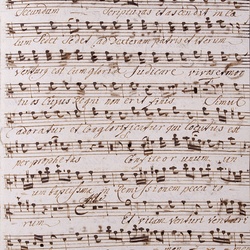 Secundum Scripturas et ascendit in Cæ
lum sedet Sedet ad Dexteram patris et iterum
venturus est cum gloria Judicare vivos et mor
tuos Cujus Regni non erit finis Simul
adoratur et conglorificatur qui locutus est
per prophetas Confiteor unum un
um baptisma in Remissionem pecca to
rum. et vitam venturi venturi